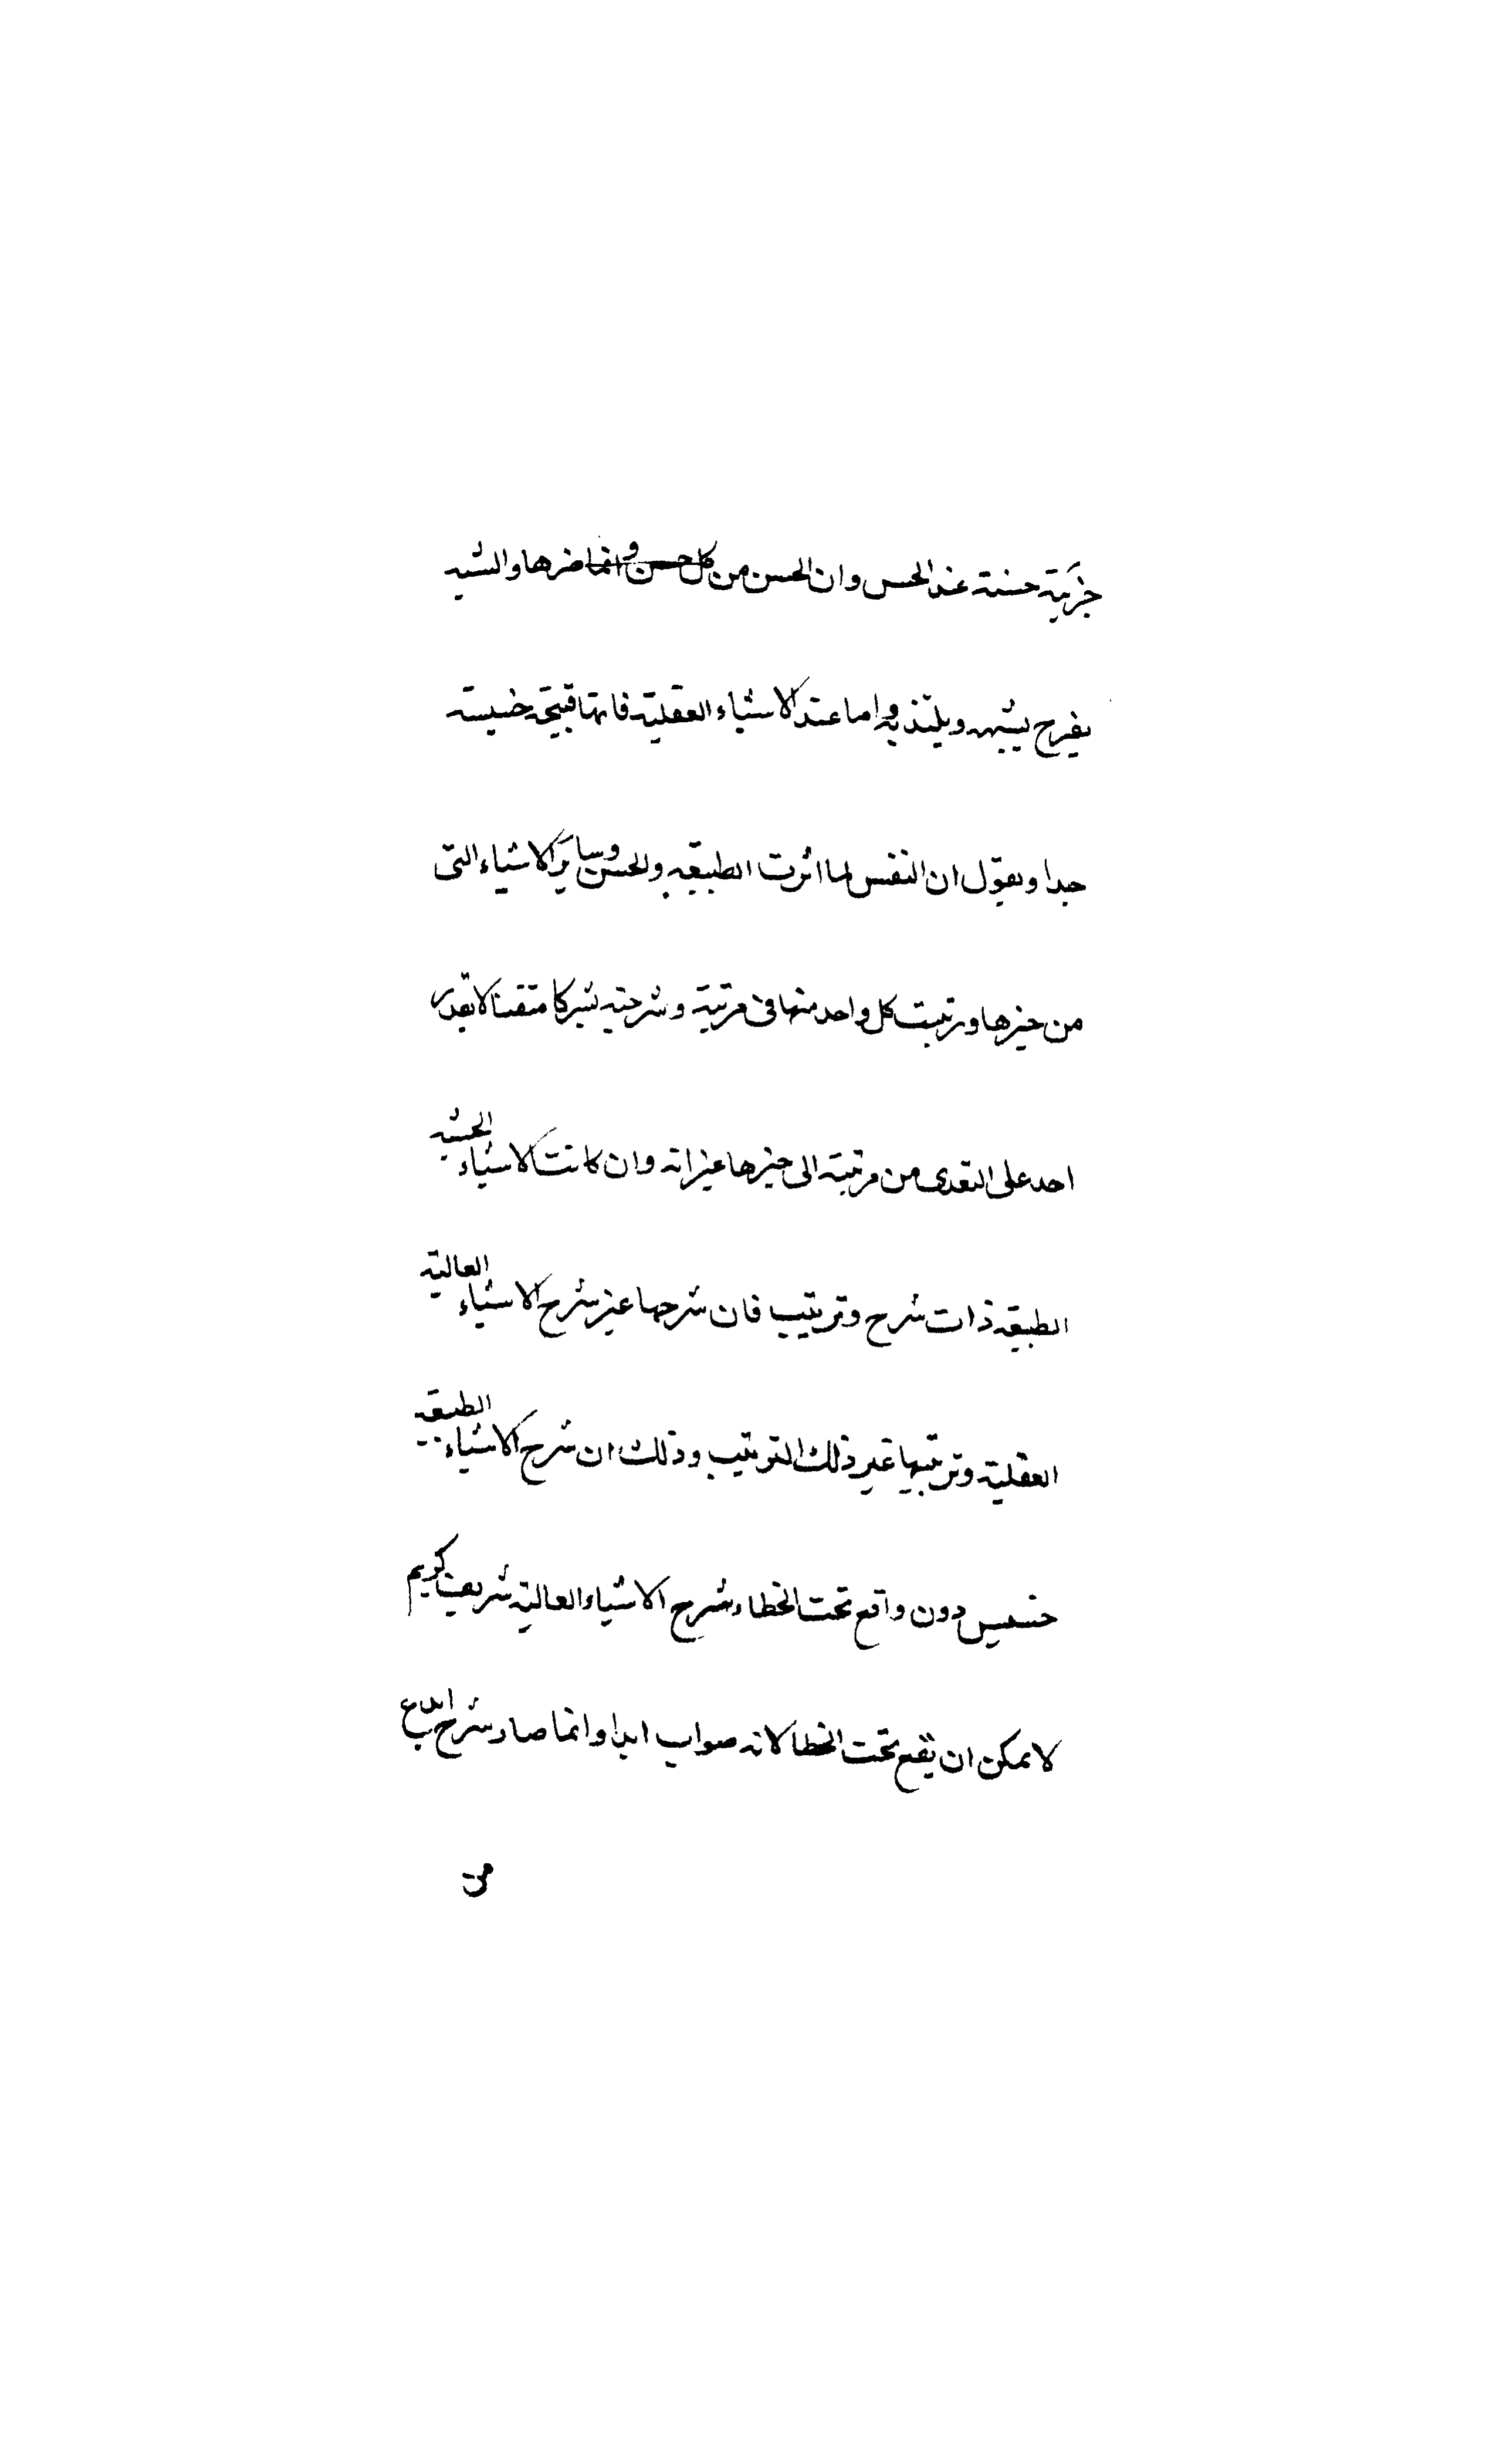 جزئية حسنة عند الحس وان الحسن من كل حسن وانما ضرها والشبيه
يفرح بشبهه ويلتذ به واما عند الاشياء العقلية فانها قبيحة خسيسة
جدا ونقول ان النفس لما اثرت الطبيعه والحس وسائر الاشياء التى
من حيزها ورتبت كل واحد منها فى مرتبة وشرحته متقنا لا يقدر
احد على التعدى من مرتبته الى حيزها غير انه وان كانت الاشياء الحسية
الطبيعه ذات شرح وترتيب فان شرحها غير شرح الاشياء العالية
العقلية وترتيبها غير ذلك الترتيب وذلك ان شرح الاشياء الطبيعيه
خسيس دون واقع تحت الخطاء شرح الاشياء العالية شريف كريم
لا يمكن ان يقع تحت الخطا لانه صواب ابدا وانما صار شرح